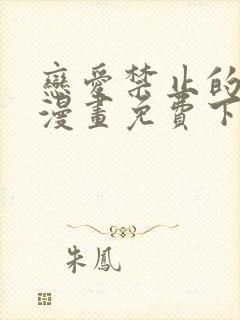 戀愛禁止的
漫畫免費下
朱鳳